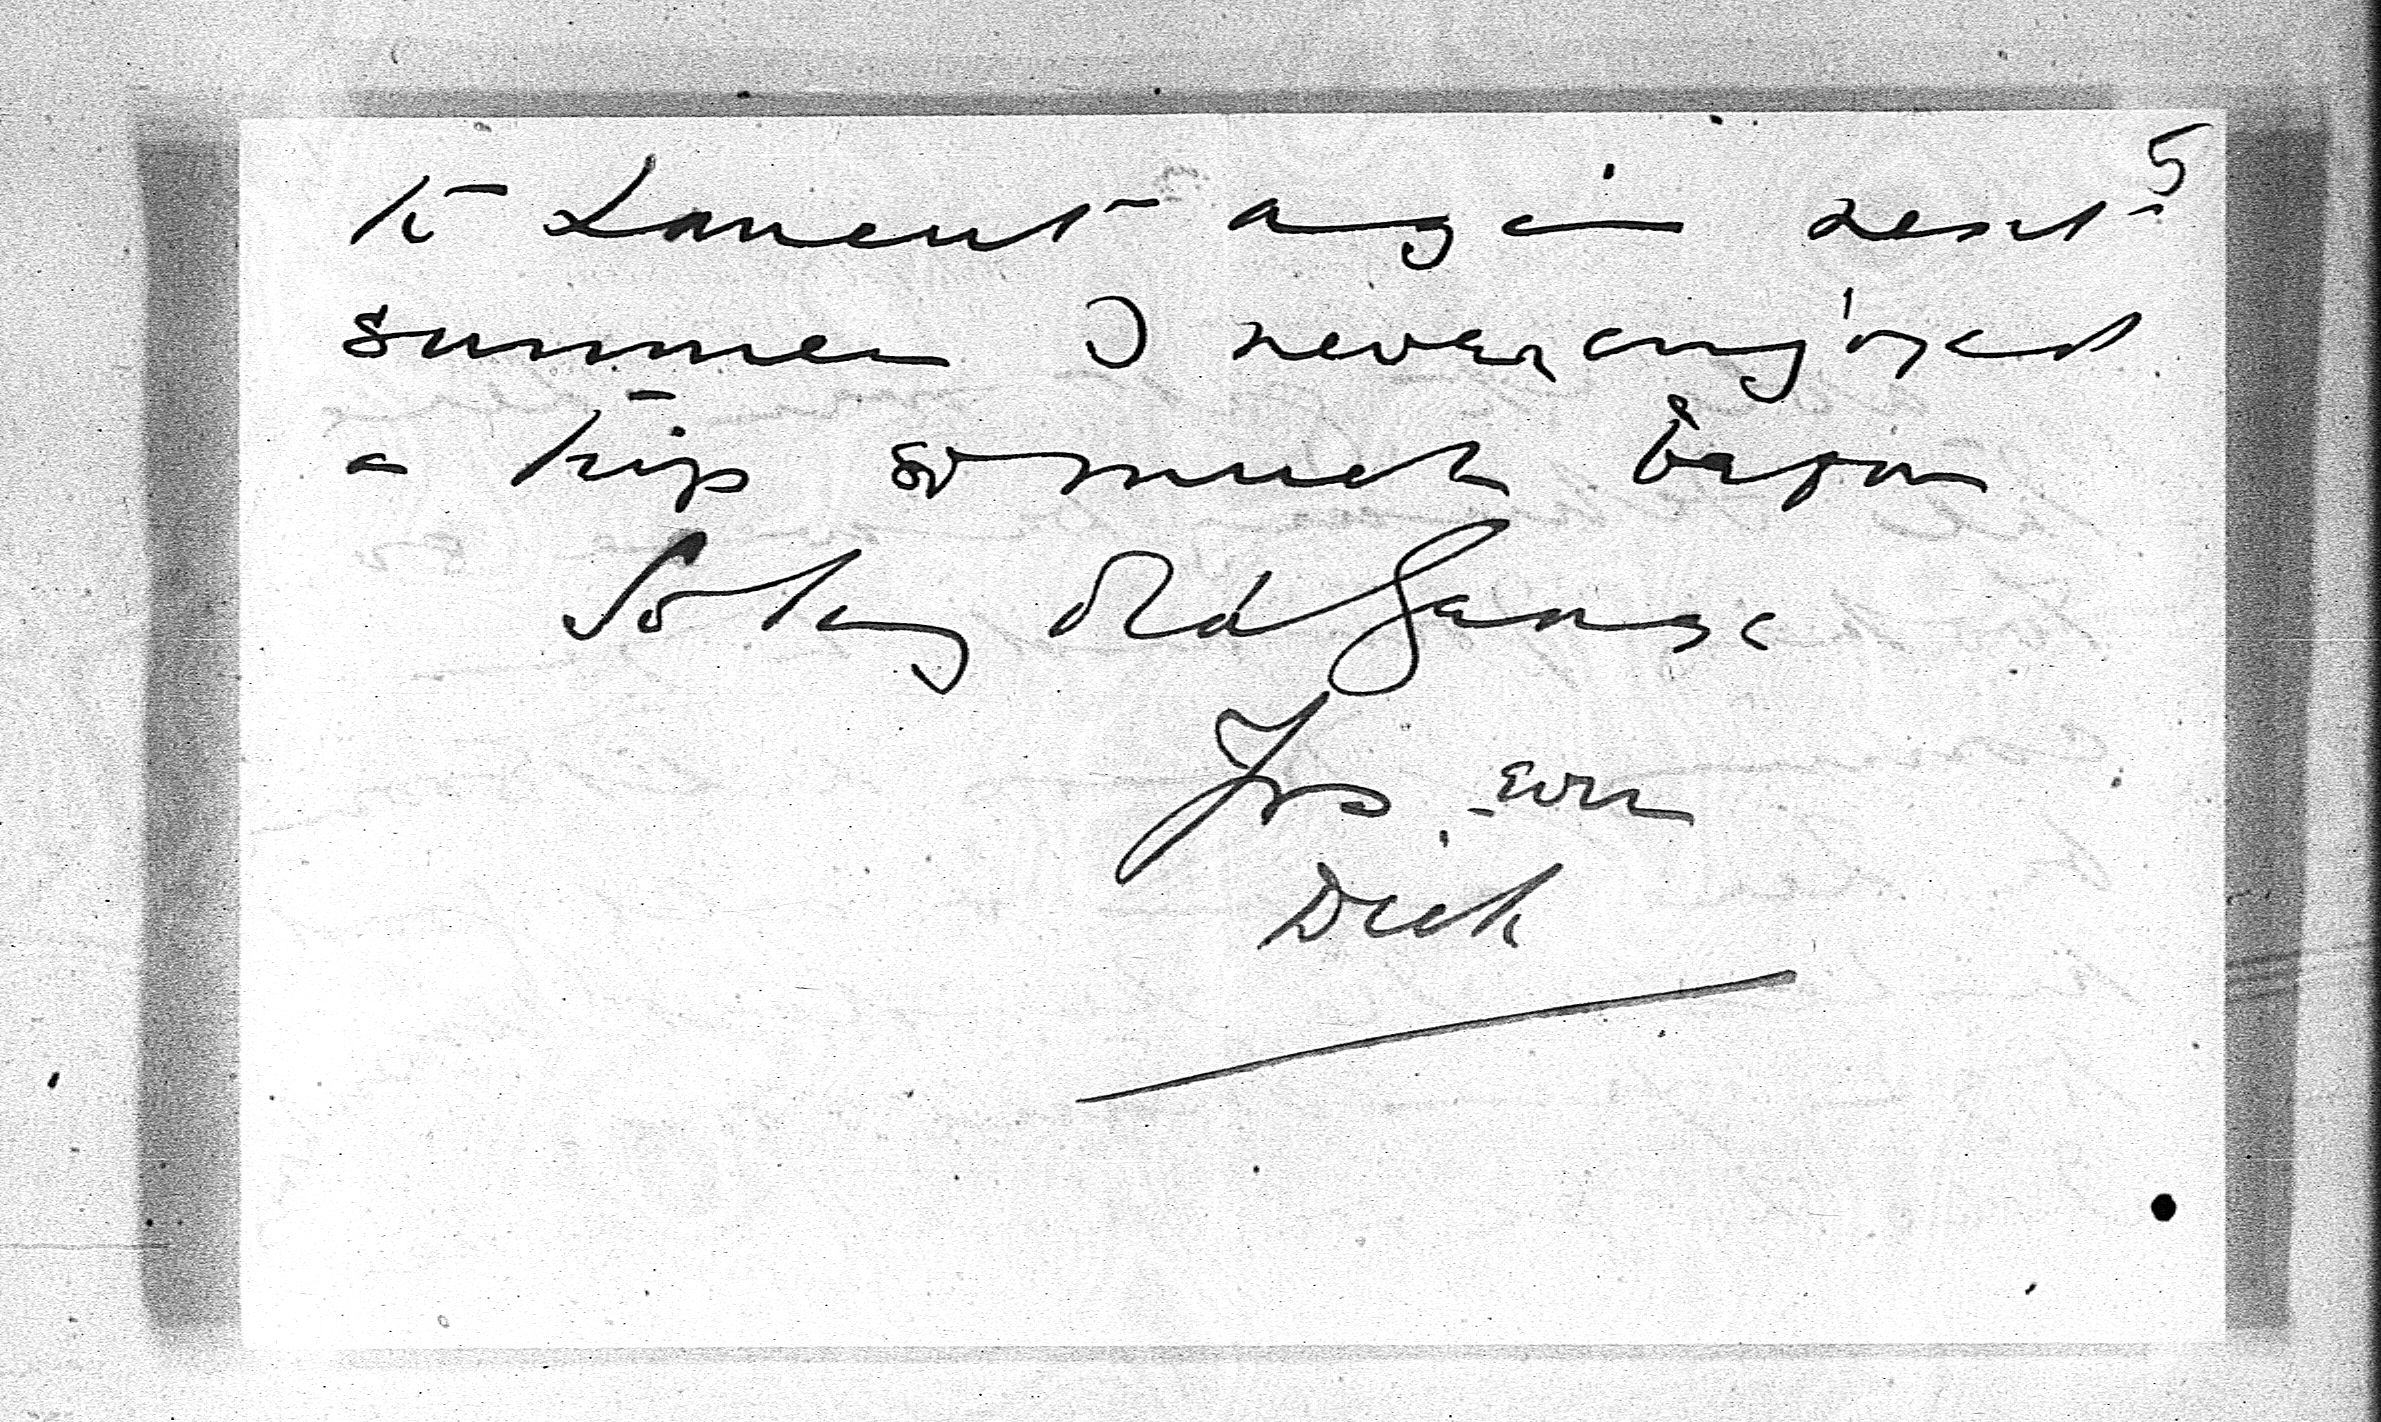 5
to Lament again next
summer I never enjoyed
a trip so much before
So long Old
Yrs ever
Dick